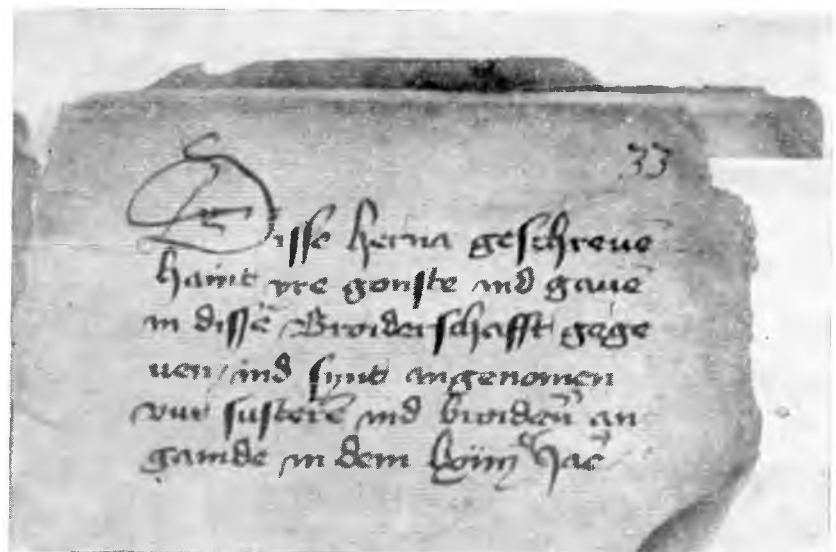 33
Disse herna geschreuē
haint yre gonste ind gauē
in dissē Broiderschafft gege
uen / ind synt angenomen
vur susterē ind broiderē an
gainde in dem